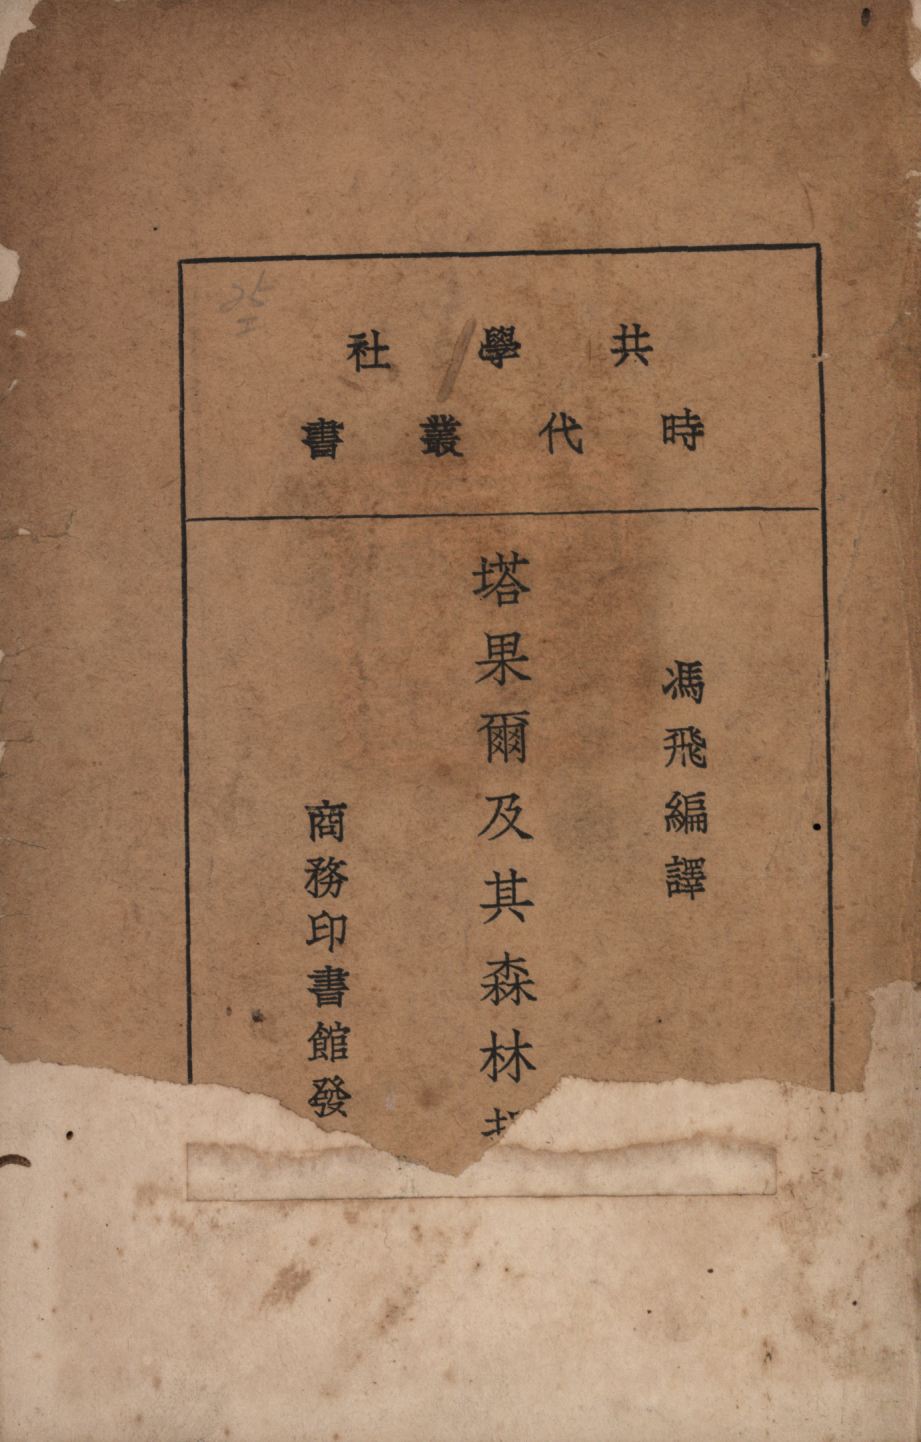 共學社
時代叢書
馮飛編譯
塔果爾及其森林
商務印書館發